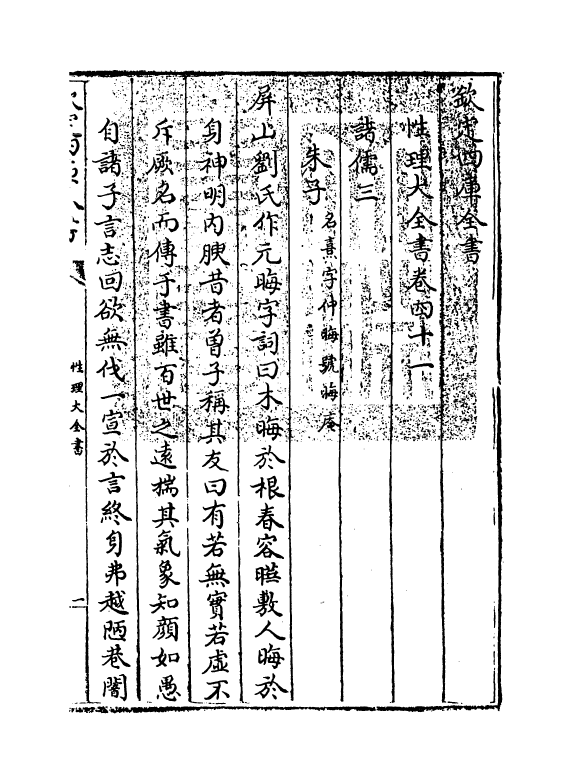 欽定四庫全書
性理大全書卷四十一
諸儒三
朱子名熹字仲晦號晦庵
屏山劉氏作元晦字詞曰木晦於根春容曄敷人晦於
身神明內腴昔者曾子稱其友曰有若無實若虛不
斥厥名而傳于書雖百世之遠揣其氣象知顔如愚
自諸子言志回欲無伐一宣於言終身弗越陋巷闇
性理大全書
一